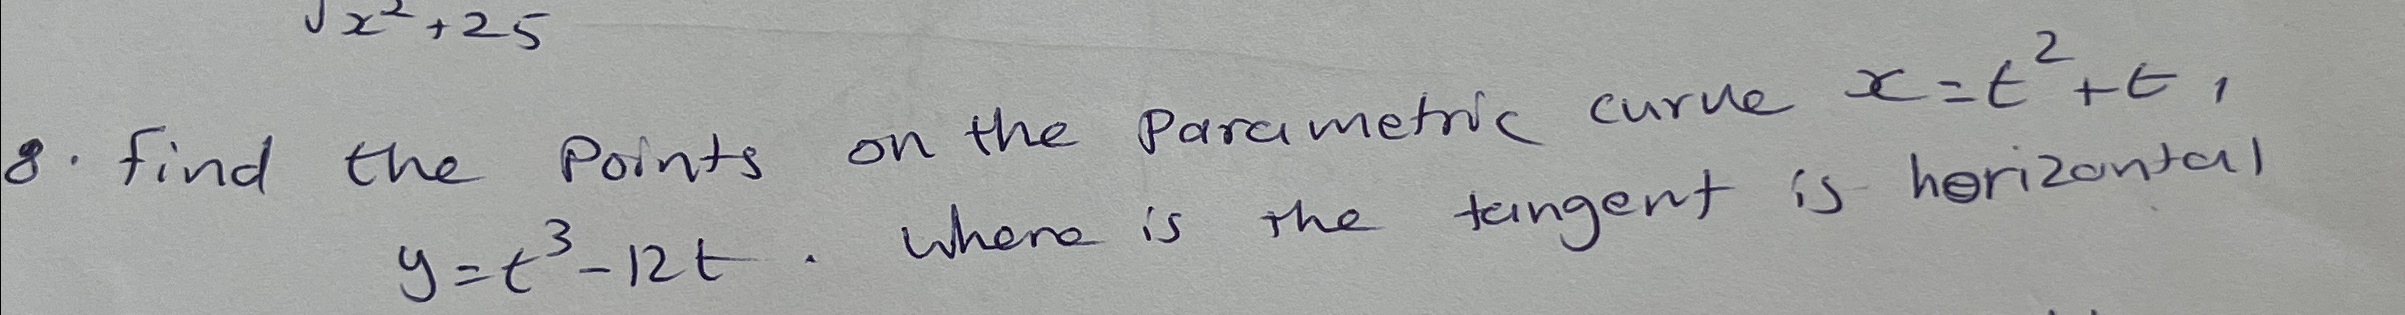 √x²+25
8. find the Points on the Parametric curve x=t²+t,
y=t³-12t. where is the tangent is horizontal